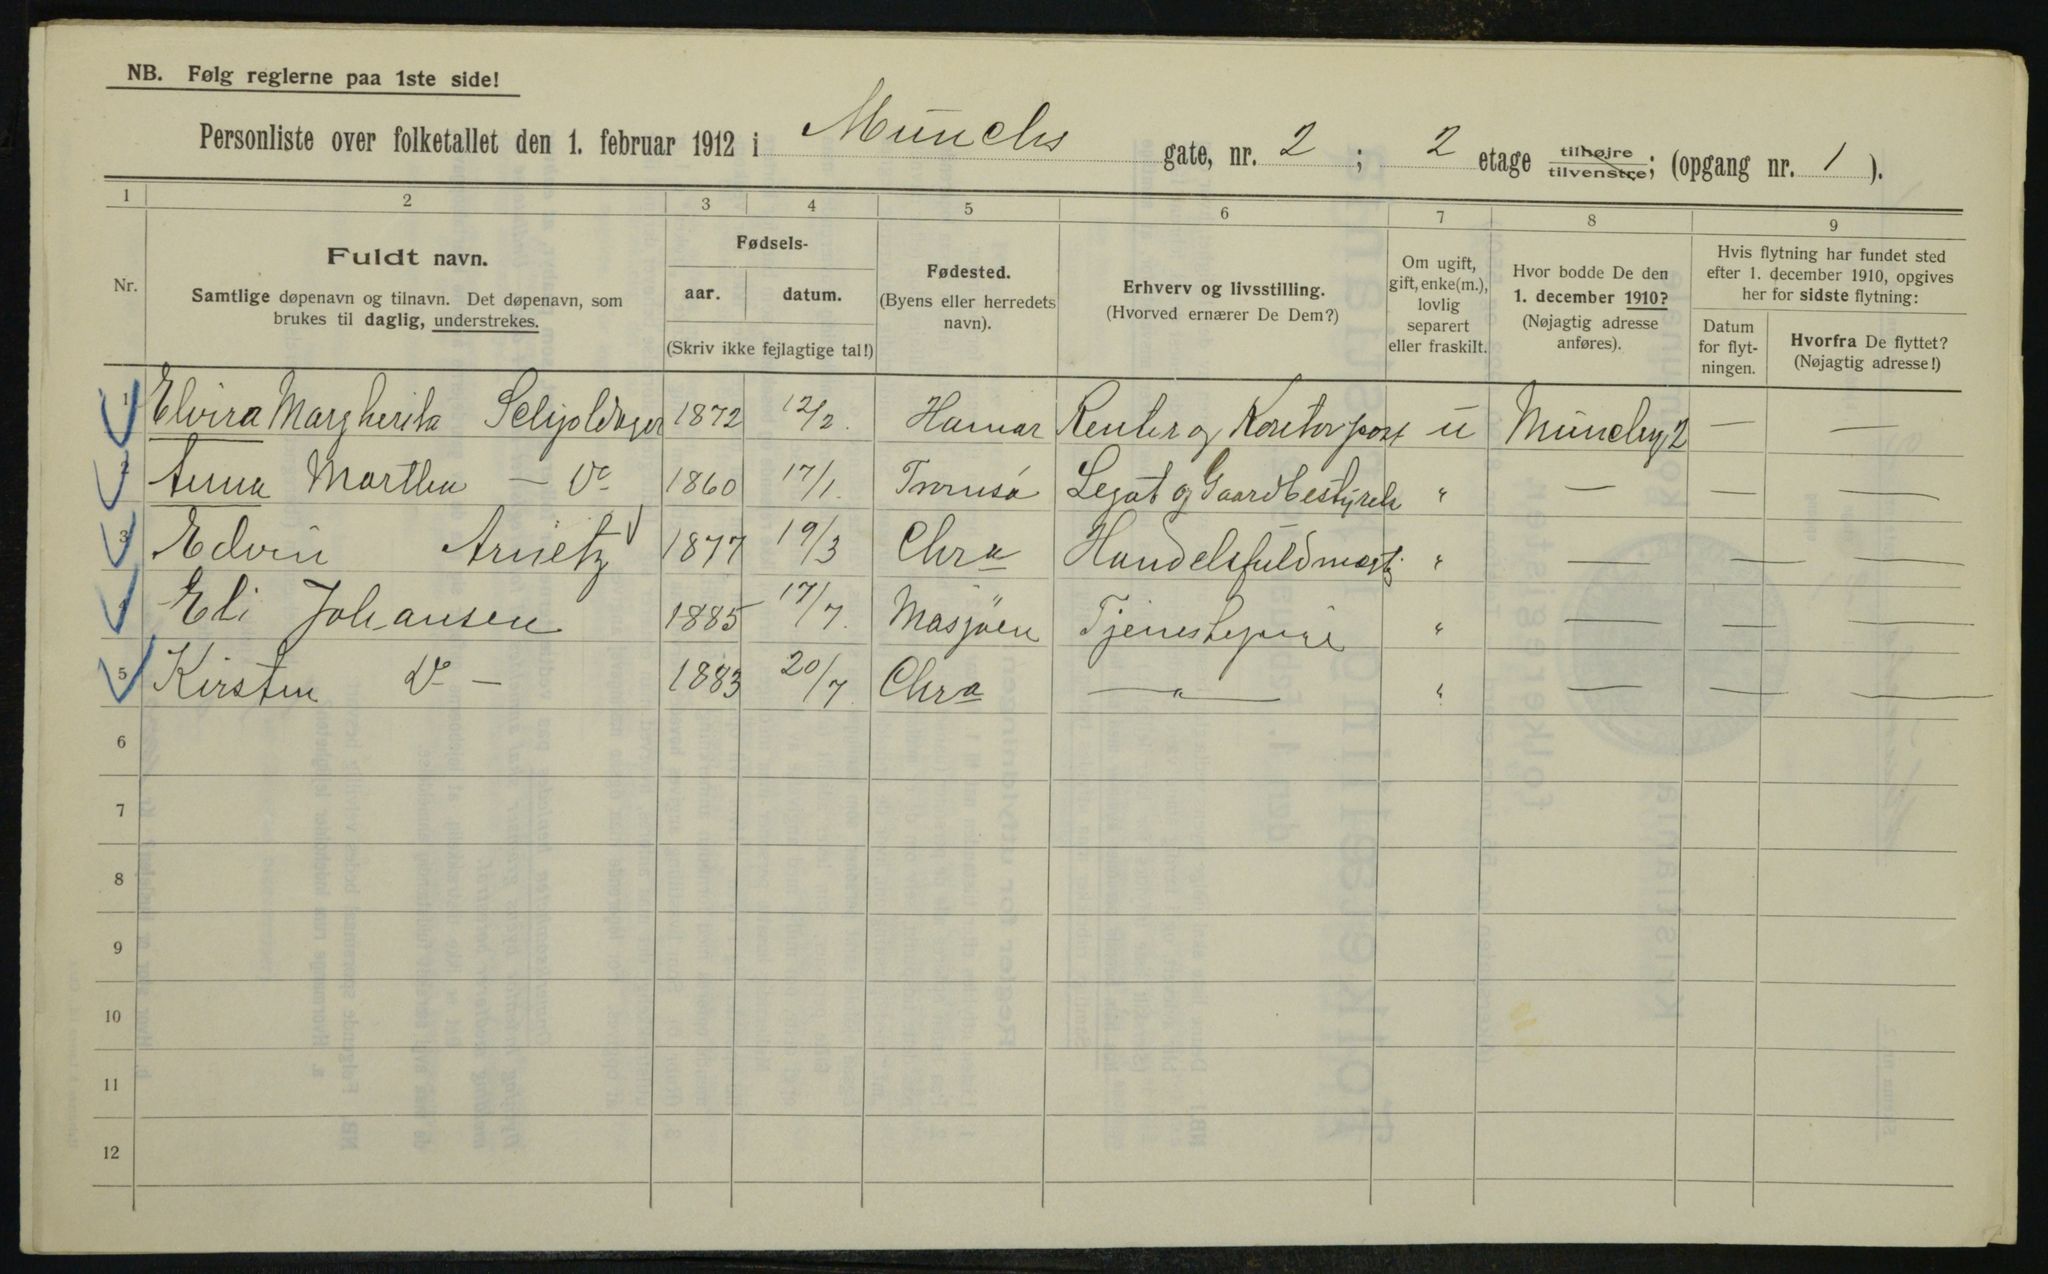 NB. Følg reglerne paa 1ste side!
Personliste over folketallet den 1. februar 1912 i Münchs gate, nr. 2 ; 2 etage tilhøjre tilvenstre; (opgang nr. 1 ).
1 2 3 4 5 6 7 8 9
Nr.
Fuldt navn.
Samtlige døpenavn og tilnavn. Det døpenavn, som
brukes til daglig, understrekes.
Fødsels-
aar. datum.
(Skriv ikke fejlagtige tal!)
Fødested.
(Byens eller herredets
navn).
Erhverv og livsstilling.
(Hvorved ernærer De Dem?)
Om ugift,
gift, enke(m.),
lovlig
separert
eller fraskilt.
Hvor bodde De den
1. december 1910?
(Nøjagtig adresse
anføres).
Hvis flytning har fundet sted
efter 1. december 1910, opgives
her for sidste flytning:
Datum
for flyt-
ningen.
Hvorfra De flyttet?
(Nøjagtig adresse!)
1 Elvira Margherita 1872 12/2. Hamar Renter og Kontorpost u Münchsg 2 — —
2 Anna Martha — Do 1860 17/1. Tromsø Legat og Gaardbestyrer " — — —
3 Edvin Arnetz 1877 19/3 Chra Handelsfuldmægt. " — — —
4 Eli Johansen 1885 17/7. Mosjöen Tjenestepige " — — —
5 Kirsten Do — 1883 20/7 Chra — " — " — — —
6
7
8
9
10
11
12